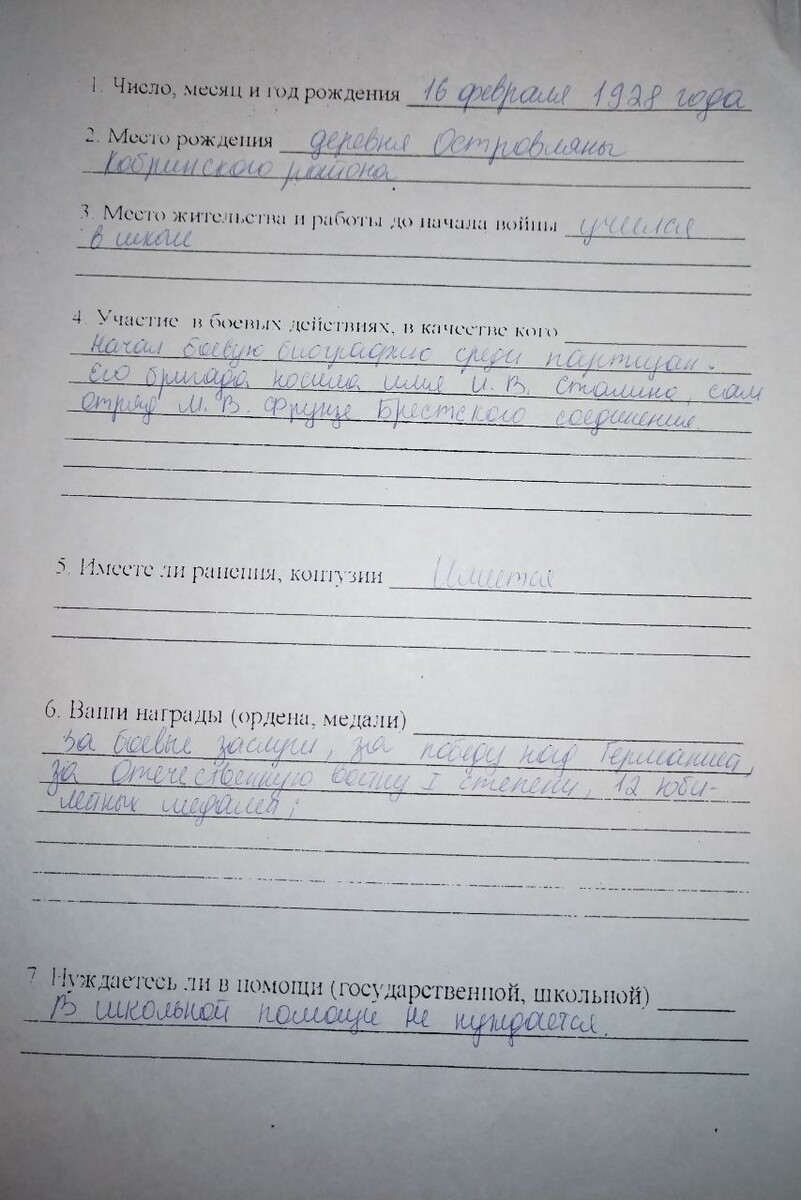 1. Число, месяц и год рождения 16 февраля 1928 года
2. Место рождения деревня Островляны
Кобринского района
3. Место жительства и работы до начала войны учился
в школе
4. Участие в боевых действиях, в качестве кого
Начал боевую биографию среди партизан.
Его бригада носила имя И. В. Сталина, сам
отряд М. В. Фрунзе Брестского соединения
5. Имеете ли ранения, контузии Имеется
6. Ваши награды (ордена, медали)
За боевые заслуги, за победу над Германией,
за Отечественную войну I степени, 12 юби-
лейных медалей;
7 Нуждаетесь ли в помощи (государственной, школьной)
В школьной помощи не нуждается.